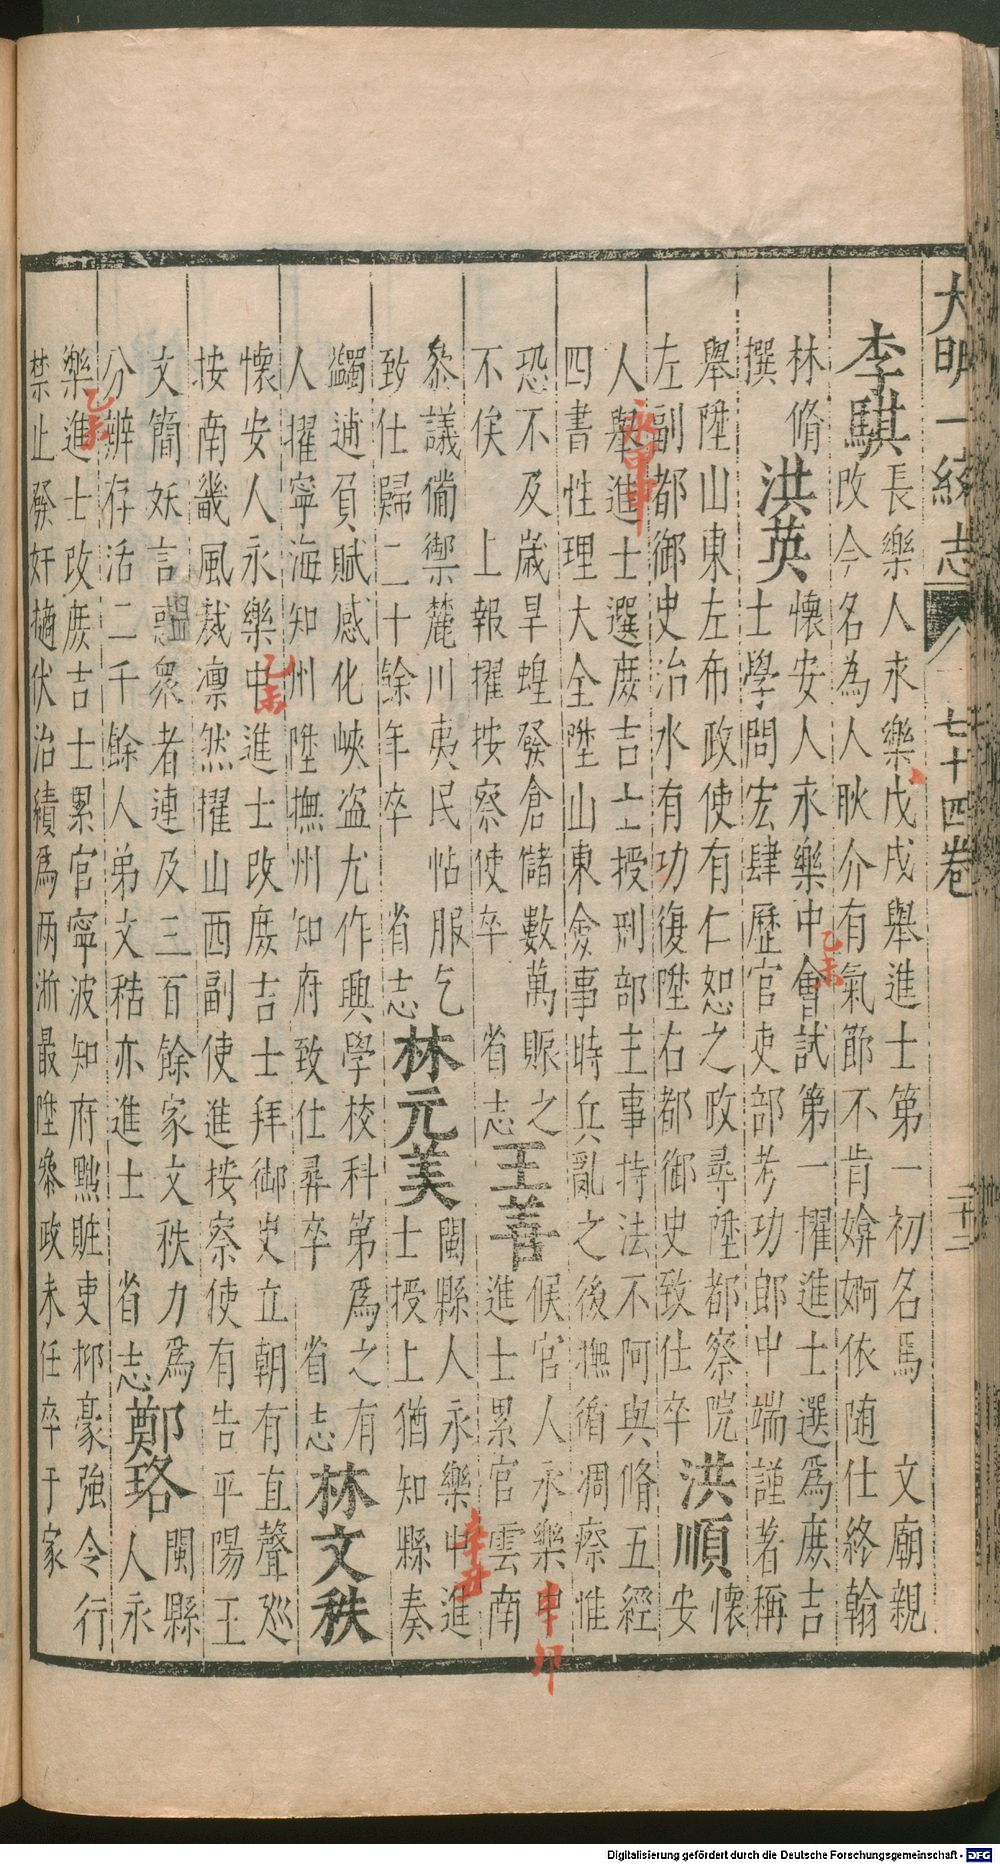 大明一統志 七十四卷 二十一
李騏
長樂人永樂戊戌舉進士第一初名馬 文廟親
改今名為人耿介有氣節不肯媕婀依随仕終翰
林脩
撰
洪英
懷安人永樂中會試第一擢進士選爲庻吉
士學問宏肆歷官吏部考功郎中端謹著稱
乙未
舉陞山東左布政使有仁恕之政尋陞都察院
左副都御史治水有功復陞右都御史致仕卒
洪順
懷
安
人舉進士選庻吉士授刑部主事持法不阿與脩五經
四書性理大全陞山東僉事時兵亂之後撫循凋瘵惟
永甲申
恐不及歲旱蝗發倉儲數萬賑之
不俟 上報擢按察使卒 省志
王善
候官人永樂中
進士累官雲南
辛卯
叅議備禦麓川夷民帖服乞
致仕歸二十餘年卒 省志
林元美
閩縣人永樂中進
士授上猶知縣奏
辛丑
蠲逋負賦感化峽盗尤作興學校科第爲之有
人擢寧海知州陞撫州知府致仕尋卒 省志
林文秩
懷安人永樂中進士改庻吉士拜御史立朝有直聲巡
按南畿風裁凛然擢山西副使進按察使有告平陽王
乙未
文簡妖言惑衆者連及三百餘家文秩力爲
分辦存活二千餘人弟文秸亦進士 省志
鄭珞
閩縣
人永
樂進士改庻吉士累官寧波知府黜賍吏抑豪強令行
禁止發奸擿伏治績爲两浙最陞叅政未任卒于家
乙未
Digitalisierung gefördert durch die Deutsche Forschungsgemeinschaft - DFG